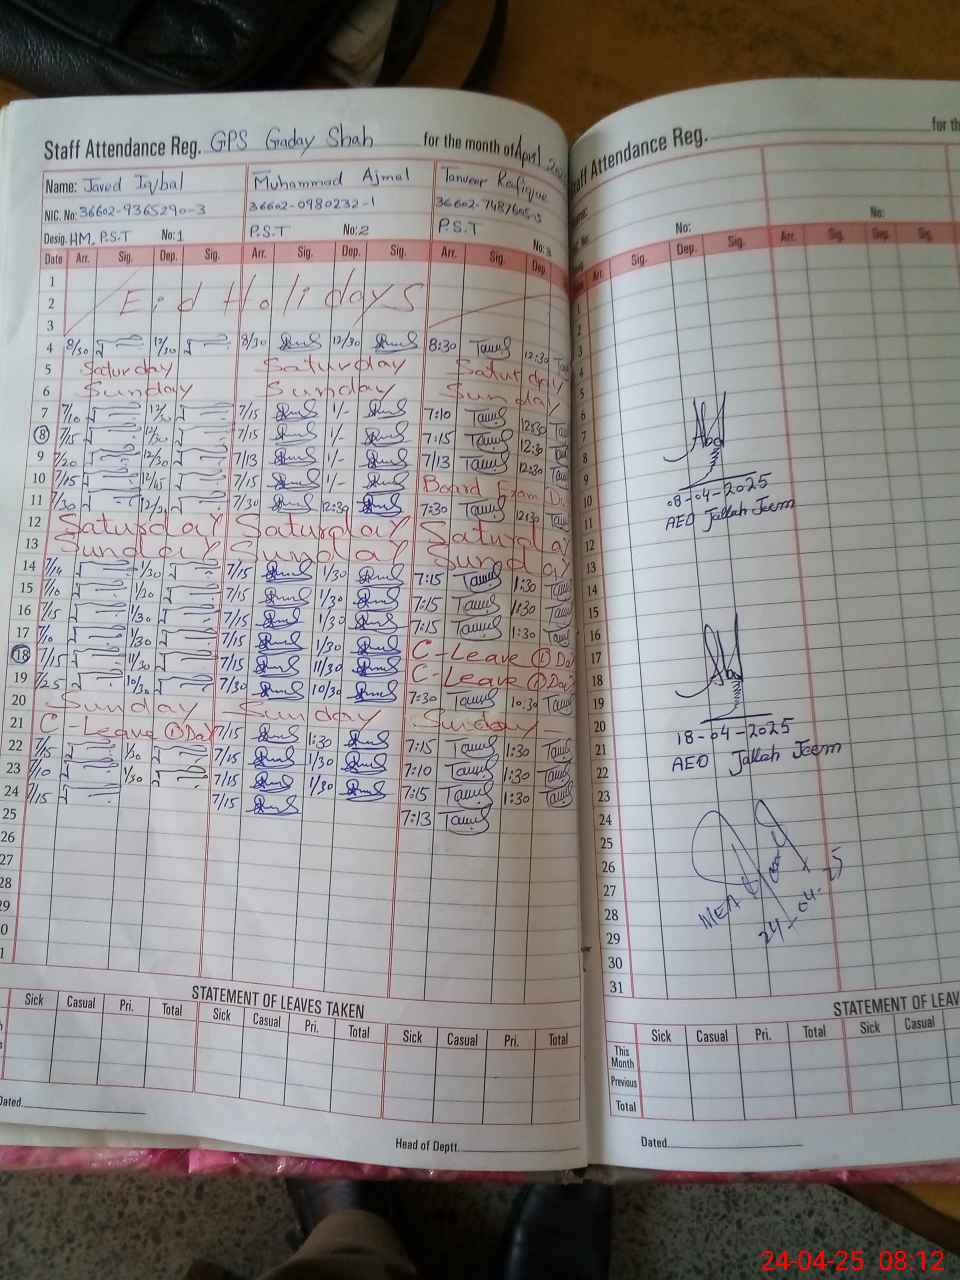 Staff Attendance Reg. GPS Gaday Shah for the month of April
Name: Javed Iqbal Muhammad Ajmal Tanveer Rafique
NIC. No. 36602-9365290-3 36602-0980232-1
Desig. HM, P.S.T No: 1 P.S.T No: 2 P.S.T No: 3
Date Arr. Sig. Dep. Sig. Arr. Sig. Dep. Sig. Arr. Sig. Dep.
1
2 Eid Holidays
3
4 8/30 12/30 8/30 12/30 8:30 12:30
5 Saturday Saturday Saturday
6 Sunday Sunday Sunday
7 7/10 12/30 7/15 1/- 7:10 12:30
8 7/15 12/30 7/15 1/- 7:15 12:30
9 7/20 12/30 7/13 1/- 7/13 12:30
10 7/15 12/45 7/15 1/- Board Exam D
11 7/30 12/30 7/30 12:30 7:30 12:30
12 Saturday Saturday Saturday
13 Sunday Sunday Sunday
14 7/14 1/30 7/15 1/30 7:15 1:30
15 7/10 1/20 7/15 1/30 7:15 1:30
16 7/15 1/30 7/15 1/30 7:15 1:30
17 7/10 1/30 7/15 1/30 C-Leave 1 Day
18 7/15 11/30 7/15 11/30 C-Leave 1 Day
19 7/25 10/30 7/30 10/30 7:30 10:30
20 Sunday Sunday Sunday
21 C-Leave 1 Day 7/15 1:30 7:15 1:30
22 7/15 1/30 7/15 1/30 7:10 1:30
23 7/10 1/30 7/15 1/30 7:15 1:30
24 7/15 7/15 7:13
25
26
27
28
29
0
1
STATEMENT OF LEAVES TAKEN
Sick Casual Pri. Total Sick Casual Pri. Total Sick Casual Pri. Total
Dated.
Head of Deptt.
taff Attendance Reg. for th
No: No:
Arr. Sig. Dep. Sig. Arr. Sig. Dep. Sig.
1
2
3
4
5
6
7
8
9
10
11
12
13
14
15
16
17
18
19
20
21
22
23
24
25
26
27
28
29
30
31
08-04-2025
AEO Jallah Jeem
18-04-2025
AEO Jallah Jeem
MEA
24-04-25
STATEMENT OF LEAV
Sick Casual Pri. Total Sick Casual
This Month
Previous
Total
Dated.
24-04-25 08:12